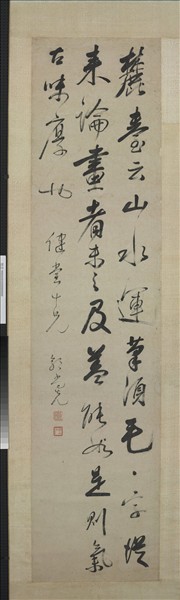 麓臺云山水運筆須毛〻字從
來論畫者未之及蓋能如是則氣
古味厚也 健堂十兄 郭尚先